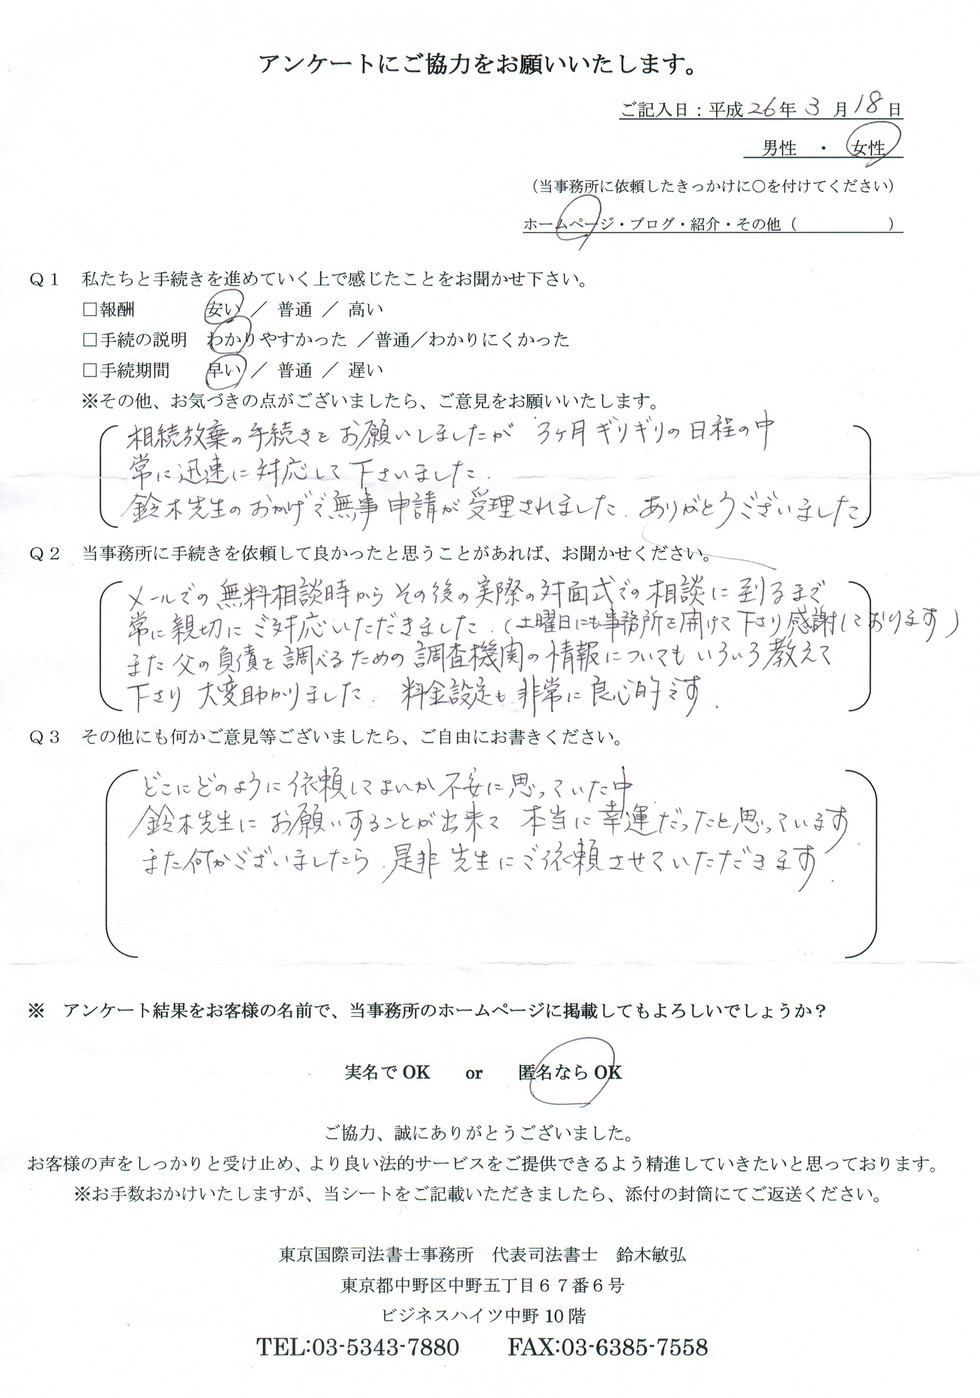 アンケートにご協力をお願いいたします。
ご記入日：平成26年3月18日
男性　・　女性
（当事務所に依頼したきっかけに〇を付けてください）
ホームページ・ブログ・紹介・その他（　　　　　）
Ｑ１　私たちと手続きを進めていく上で感じたことをお聞かせ下さい。
□報酬　　　　安い ／ 普通 ／ 高い
□手続の説明　わかりやすかった ／普通／わかりにくかった
□手続期間　　早い ／ 普通 ／ 遅い
※その他、お気づきの点がございましたら、ご意見をお願いいたします。
相続放棄の手続きをお願いしましたが 3ヶ月ギリギリの日程の中
常に迅速に対応して下さいました.
鈴木先生のおかげで無事申請が受理されました. ありがとうございました
Ｑ２　当事務所に手続きを依頼して良かったと思うことがあれば、お聞かせください。
メールでの無料相談時からその後の実際の対面式での相談に到るまで
常に親切にご対応いただきました.（土曜日にも事務所を開けて下さり感謝しております）
また父の負債を調べるための調査機関の情報についてもいろいろ教えて
下さり 大変助かりました. 料金設定も非常に良心的です.
Ｑ３　その他にも何かご意見等ございましたら、ご自由にお書きください。
どこにどのように依頼してよいか不安に思っていた中
鈴木先生にお願いすることが出来て 本当に幸運だったと思っています.
また何かございましたら 是非先生にご依頼させていただきます.
※　アンケート結果をお客様の名前で、当事務所のホームページに掲載してもよろしいでしょうか？
実名でOK　　or　　匿名ならOK
ご協力、誠にありがとうございました。
お客様の声をしっかりと受け止め、より良い法的サービスをご提供できるよう精進していきたいと思っております。
※お手数おかけいたしますが、当シートをご記載いただきましたら、添付の封筒にてご返送ください。
東京国際司法書士事務所　代表司法書士　鈴木敏弘
東京都中野区中野五丁目６７番６号
ビジネスハイツ中野 10 階
TEL:03-5343-7880　　FAX:03-6385-7558